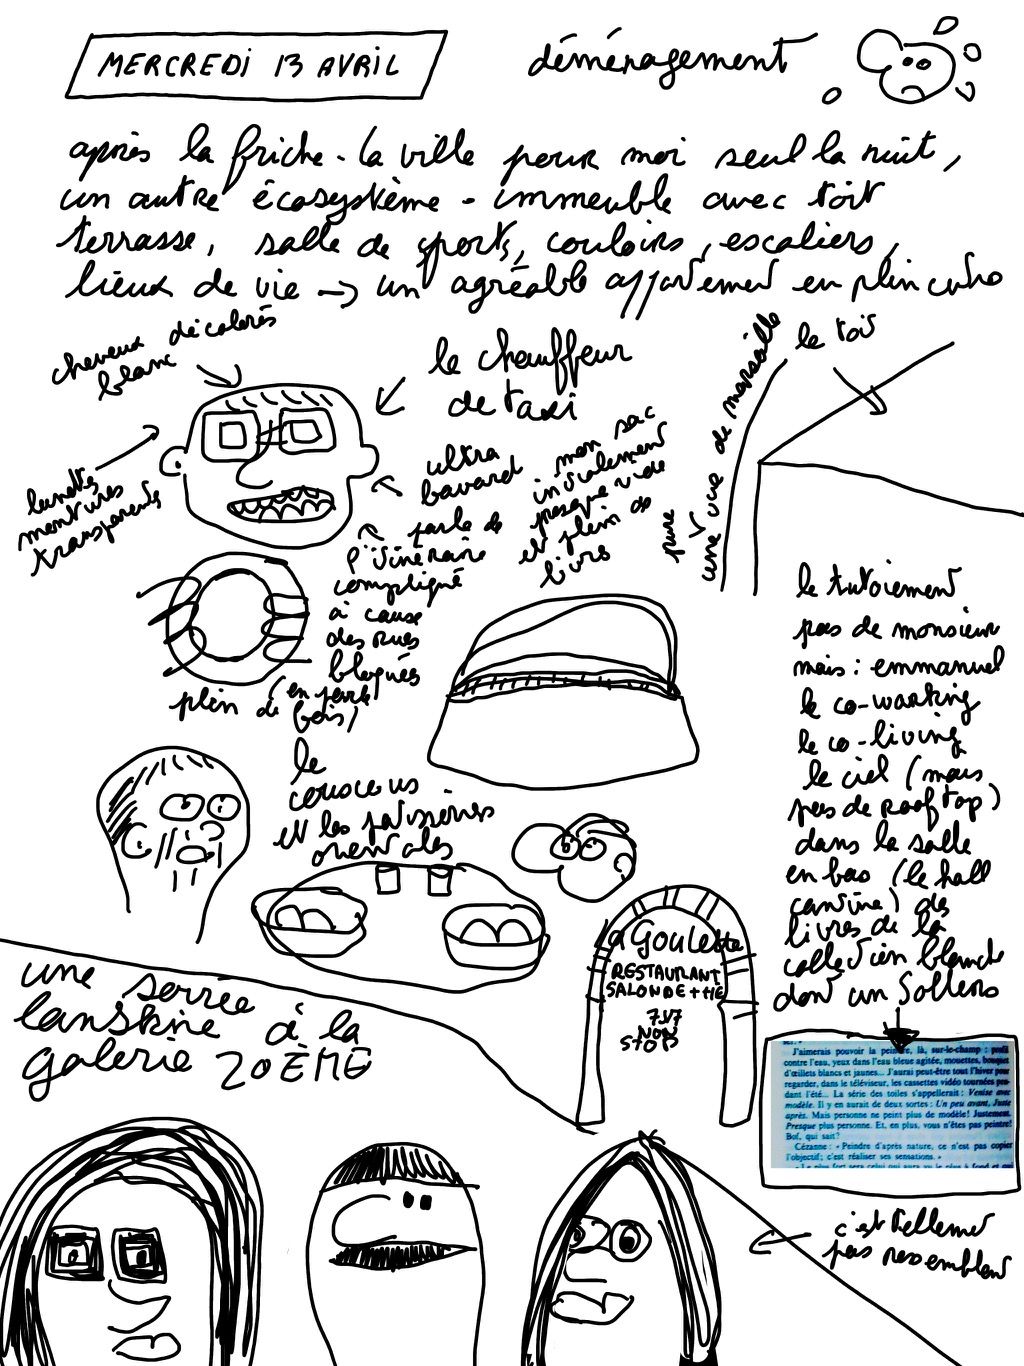 MERCREDI 13 AVRIL
déménagement
après la friche. la ville pour moi seul la nuit,
un autre écosystème. immeuble avec toit
terrasse, salle de sports, couloirs, escaliers,
lieux de vie → un agréable appartement en plein centre
cheveux décolorés
blanc
le chauffeur
de taxi
lunettes
montures
transparentes
ultra
bavard
parle de
l'itinéraire
compliqué
à cause
des rues
bloquées
(en parle
plein de
fois)
mon sac
initialement
presque vide
est plein de
livres
pure
une vue de marseille
le toit
le tutoiement
pas de monsieur
mais : emmanuel
le co-working
le co-living
le ciel (mais
pas de rooftop)
dans la salle
en bas (le hall
cantine) des
livres de la
collection blanche
dont un Sollers
le
couscous
et les patisseries
orientales
la Goulette
RESTAURANT
SALON DE THE
7J/7
NON
STOP
une soirée
lanskine à la
galerie 20ÈME
J'aimerais pouvoir la peindre, là, sur-le-champ : profil
contre l'eau, yeux dans l'eau bleue agitée, mouettes, bouquet
d'œillets blancs et jaunes... J'aurai peut-être tout l'hiver pour
regarder, dans le téléviseur, les cassettes vidéo tournées pen-
dant l'été... La série des toiles s'appellerait : Venise avec
modèle. Il y en aurait de deux sortes : Un peu avant, Juste
après. Mais personne ne peint plus de modèle! Justement.
Presque plus personne. Et, en plus, vous n'êtes pas peintre!
Bof, qui sait?
Cézanne : « Peindre d'après nature, ce n'est pas copier
l'objectif; c'est réaliser ses sensations. »
c'est tellement
pas ressemblant